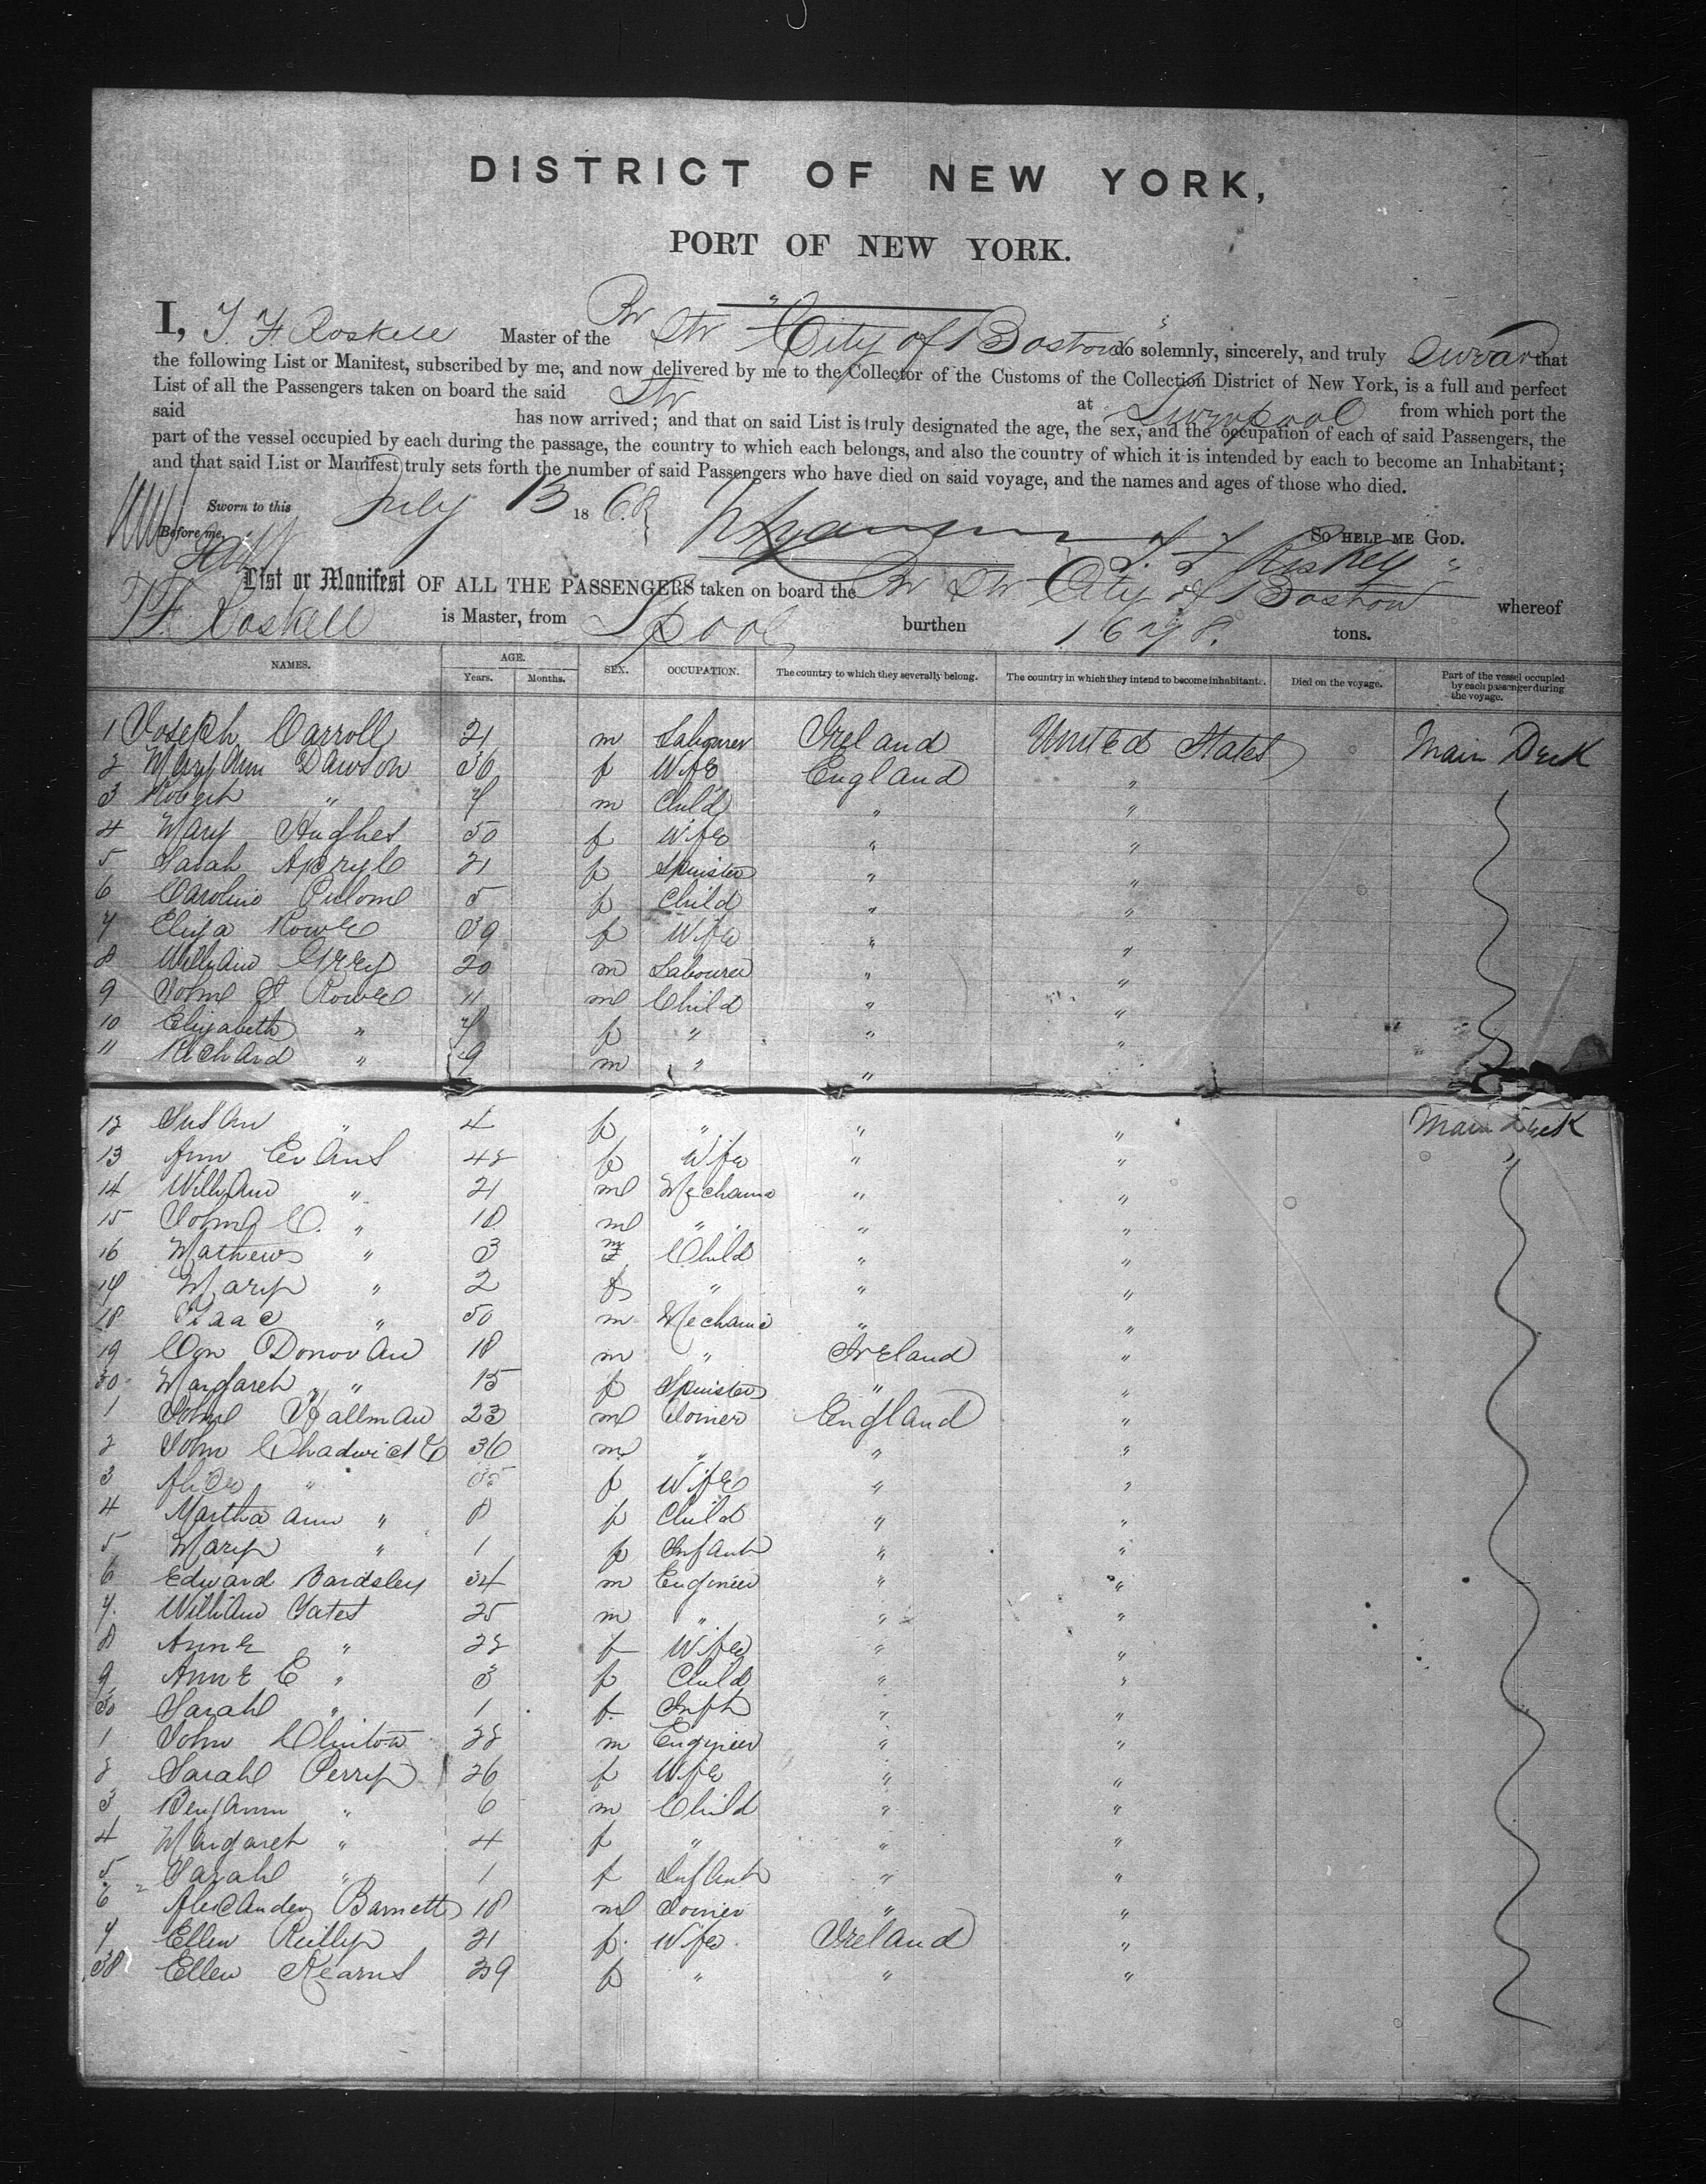 DISTRICT OF NEW YORK,
PORT OF NEW YORK.
I, T F Roskell Master of the Br Str "City of Boston" do solemnly, sincerely, and truly swear that
the following List or Manifest, subscribed by me, and now delivered by me to the Collector of the Customs of the Collection District of New York, is a full and perfect
List of all the Passengers taken on board the said Str at Liverpool from which port the
said has now arrived; and that on said List is truly designated the age, the sex, and the occupation of each of said Passengers, the
part of the vessel occupied by each during the passage, the country to which each belongs, and also the country of which it is intended by each to become an Inhabitant;
and that said List or Manifest truly sets forth the number of said Passengers who have died on said voyage, and the names and ages of those who died.
Sworn to this July 13 1868 So help me God.
Before me,
List or Manifest OF ALL THE PASSENGERS taken on board the Br Str City of Boston whereof
T F Roskell is Master, from Lpool burthen 1678. tons.
NAMES. AGE. Years. Months. SEX. OCCUPATION. The country to which they severally belong. The country in which they intend to become inhabitants. Died on the voyage. Part of the vessel occupied by each passenger during the voyage.
1 Joseph Carroll 21 m Labourer Ireland United States Main Deck
2 Mary Ann Dawson 36 f Wife England "
3 Robert " 7 m Child " "
4 Mary Hughes 50 f Wife " "
5 Sarah 21 f Spinster " "
6 Caroline 5 f Child " "
7 Eliza Rowe 39 f Wife " "
8 William Grey 20 m Labourer " "
9 John Rowe 11 m Child " "
10 Elizabeth " 7 f " " "
11 Richard " 9 m " "
12 Susan " 4 f " " " Main Deck
13 Ann Evans 42 f Wife " "
14 William " 21 m Mechanic " "
15 John C. " 18 m " " "
16 Mathew " 3 m Child " "
17 Mary " 2 f " " "
18 Isaac " 50 m Mechanic " "
19 Con Donovan 18 m " Ireland "
20 Margaret " 15 f Spinster " "
1 John Hallman 23 m Joiner England "
2 John Chadwick 36 m " " "
3 Alice " 35 f Wife " "
4 Martha Ann " 8 f Child " "
5 Mary " 1 f Infant " "
6 Edward Bardsley 34 m Engineer " "
7. William Yates 25 m " " "
8 Anne " 22 f Wife " "
9 Anne E " 3 f Child " "
30 Sarah " 1 f Inft " "
1 John Clinton 22 m Engineer " "
2 Sarah Perry 26 f Wife " "
3 Benjamin " 6 m Child " "
4 Margaret " 4 f " " "
5 Sarah " 1 f Infant " "
6 Alexander Barnett 18 m Joiner " "
7 Ellen Reilly 21 f Wife Ireland "
38 Ellen Kearns 39 f " " "